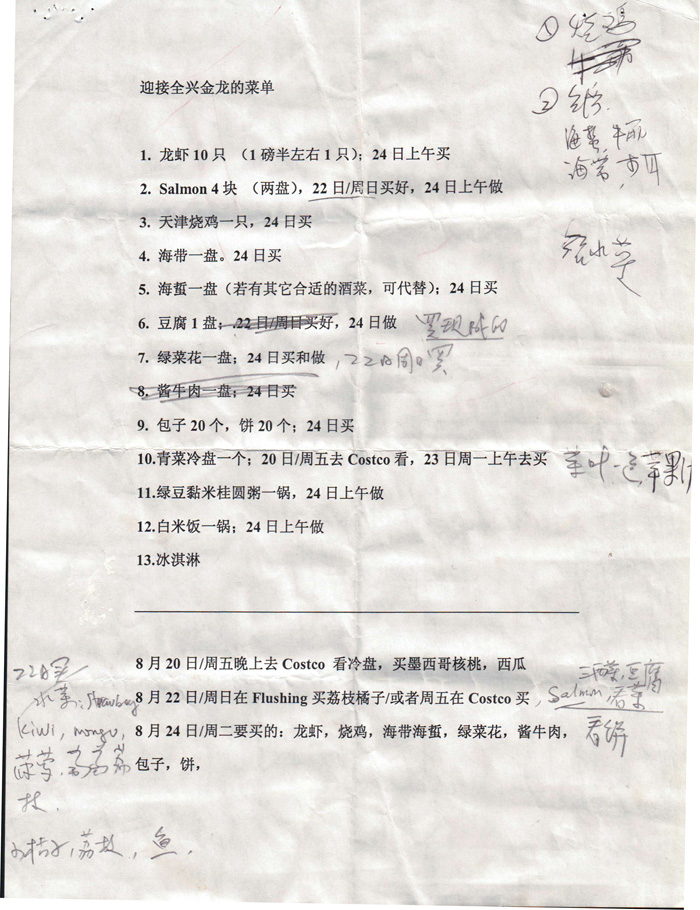 ① 烧鸡
②
海蜇，牛肉
海带，
迎接全兴金龙的菜单
1. 龙虾 10 只 （1 磅半左右 1 只）；24 日上午买
2. Salmon 4 块 （两盘），22 日/周日买好，24 日上午做
3. 天津烧鸡一只，24 日买
4. 海带一盘。24 日买
5. 海蜇一盘（若有其它合适的酒菜，可代替）；24 日买
6. 豆腐 1 盘；22 日/周日买好，24 日做 买现成的
7. 绿菜花一盘；24 日买和做，22日周日买
8. 酱牛肉一盘；24 日买
9. 包子 20 个，饼 20 个；24 日买
10.青菜冷盘一个；20 日/周五去 Costco 看，23 日周一上午去买 菜叶
11.绿豆黏米桂圆粥一锅，24 日上午做
12.白米饭一锅；24 日上午做
13.冰淇淋
8 月 20 日/周五晚上去 Costco 看冷盘，买墨西哥核桃，西瓜
8 月 22 日/周日在 Flushing 买荔枝橘子/或者周五在 Costco 买，Salmon
豆腐
8 月 24 日/周二要买的：龙虾，烧鸡，海带海蜇，绿菜花，酱牛肉，
包子，饼，
22日买
水果：Strawberry
kiwi, mongo,
菠萝，荔
枝．
小桔子，荔枝，鱼，